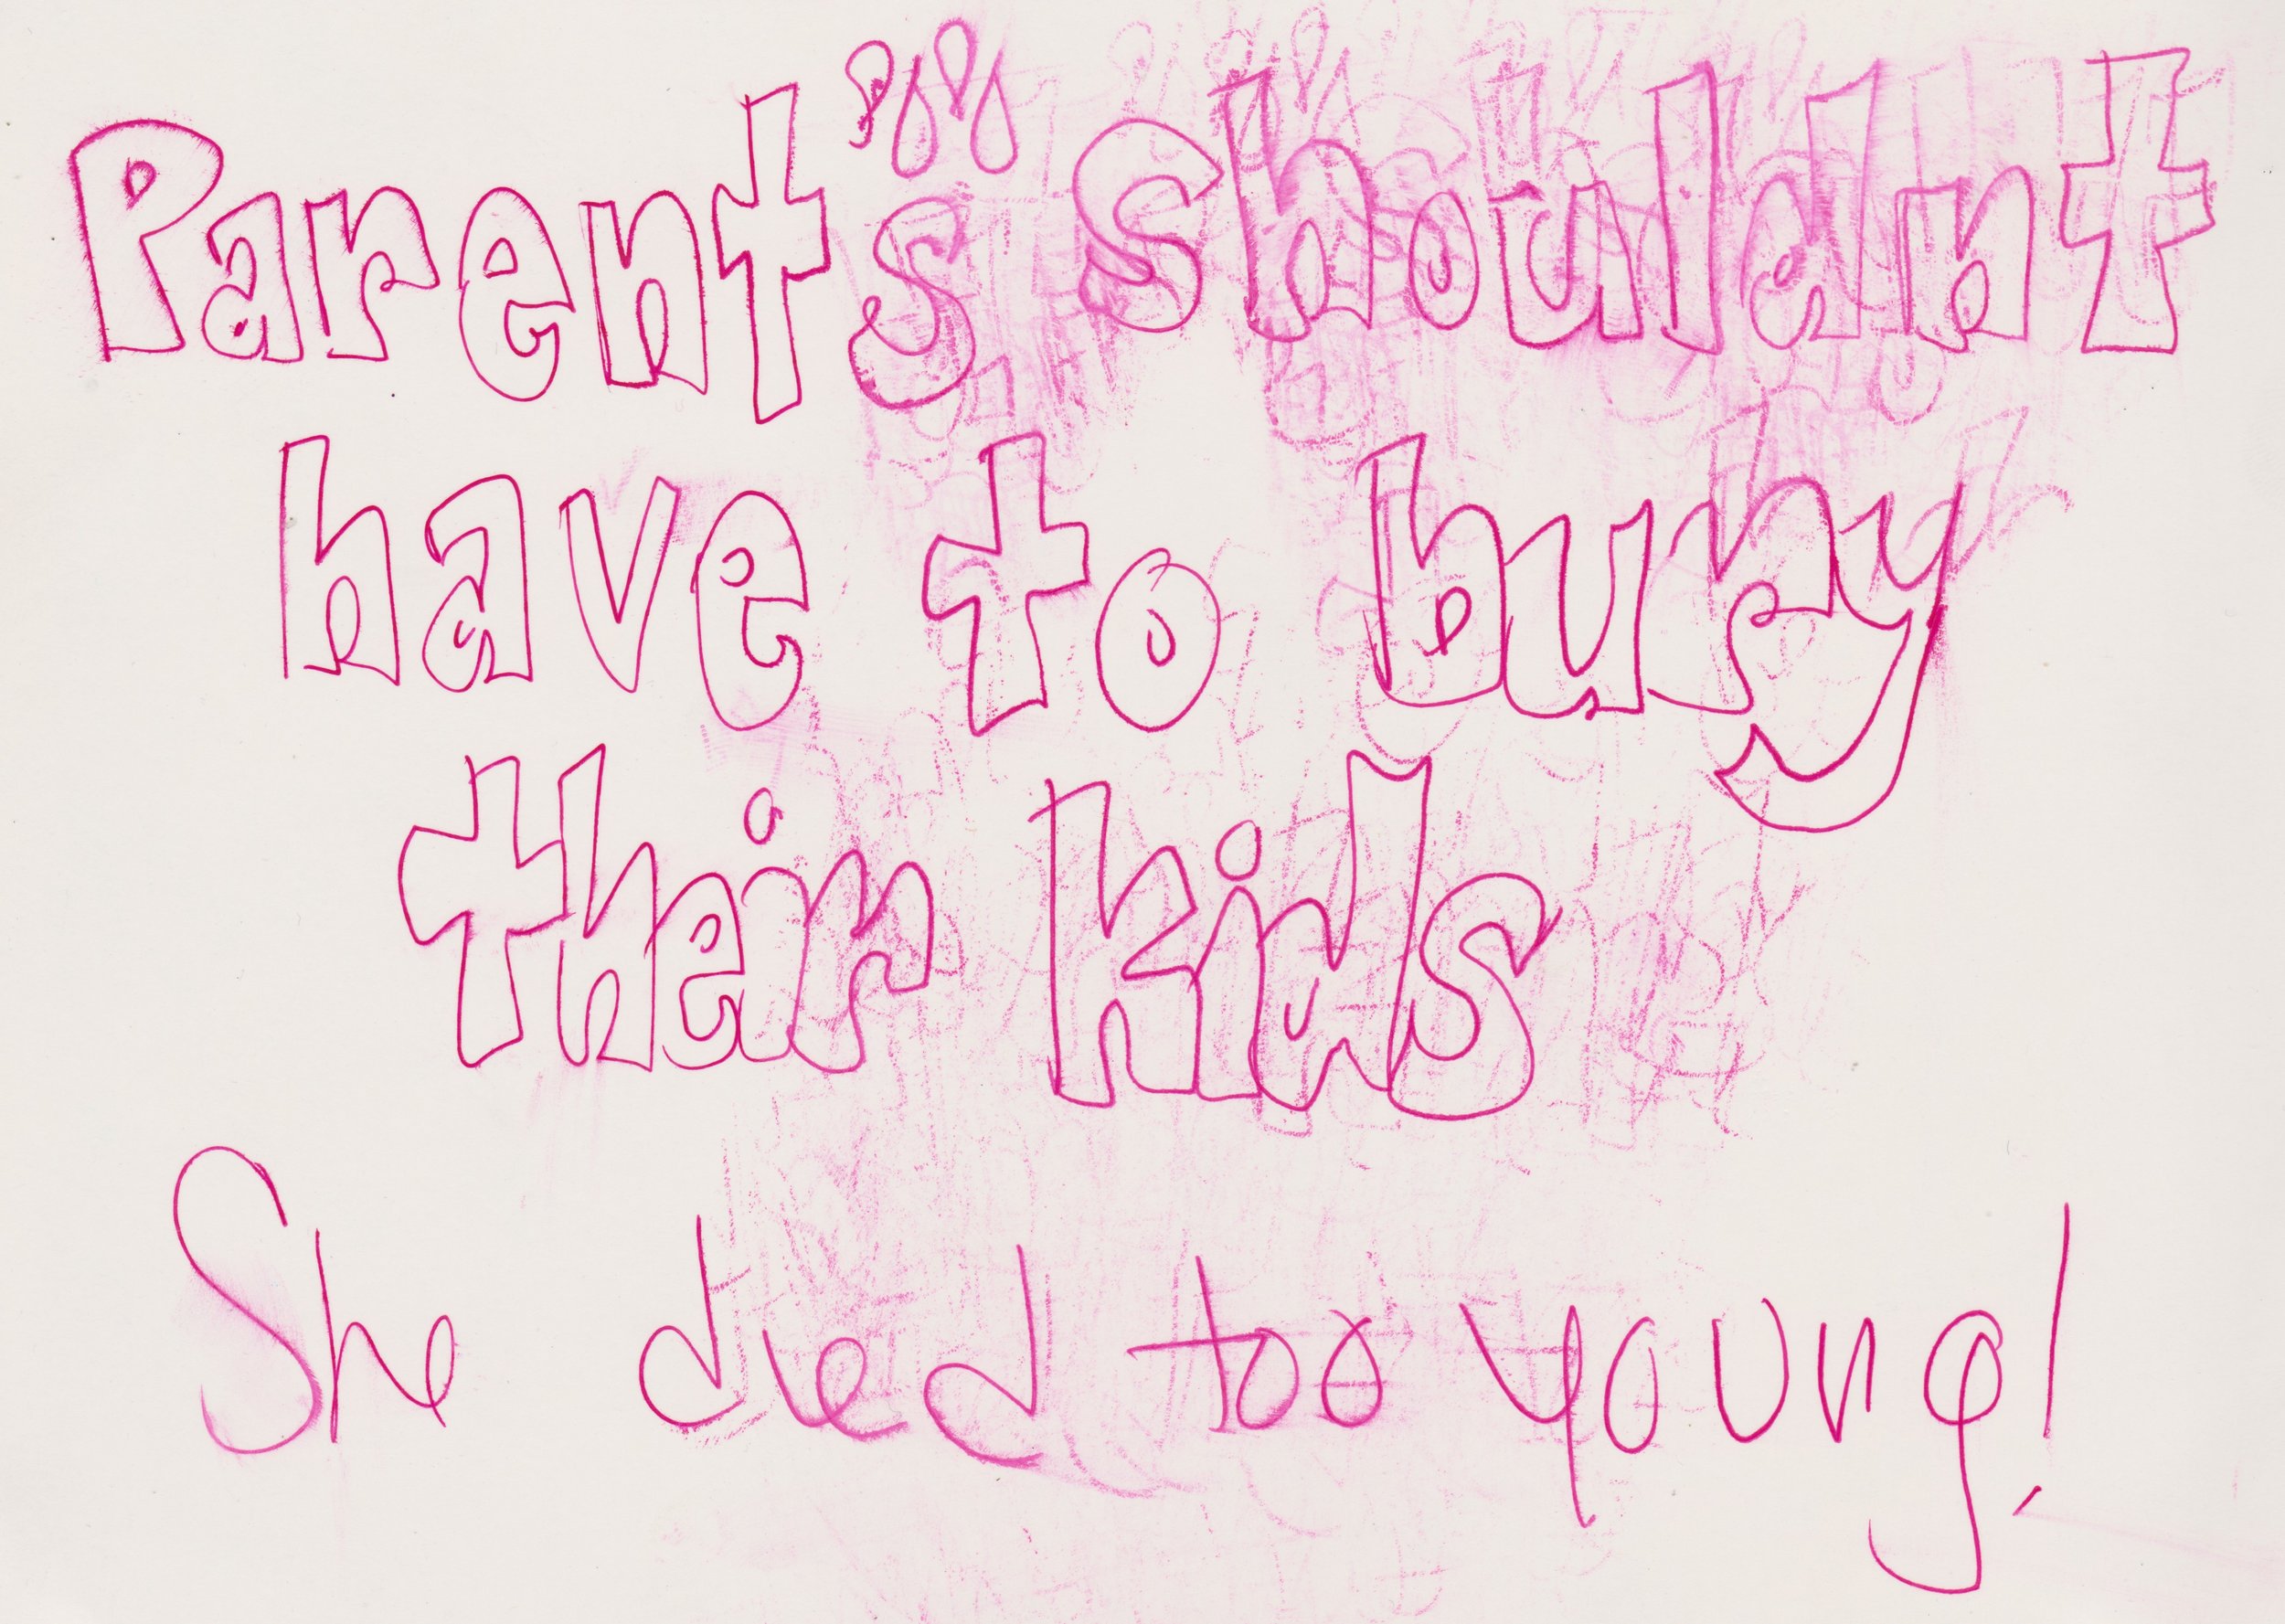 Parent's shouldnt
have to bury
their kids
She died too young!